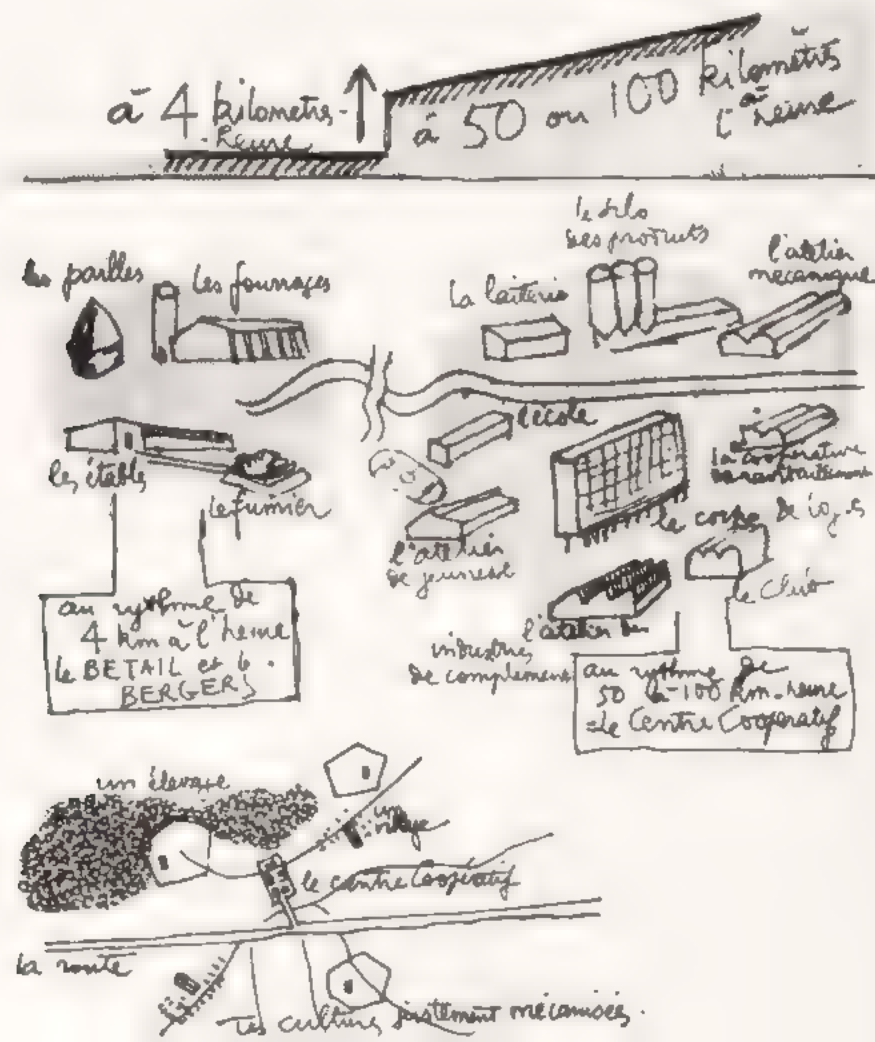 à 4 kilometres-
heure
à 50 ou 100 kilomètres
à l'heure
les pailles
les fourrages
la laiterie
le silo
des produits
l'atelier
mecanique
les étable
le fumier
l'école
l'atelier
de jeunesse
la cooperative
de ravitaillement
le corps de logis
le Club
l'atelier des
industries
de complement
au rythme de
4 km à l'heure
le BETAIL et le
BERGER
au rythme de
50 à 100 km-heure
=Le Centre Cooperatif
un élevage
un village
le centre Coopératif
la route
Les cultures justement mécanisées.